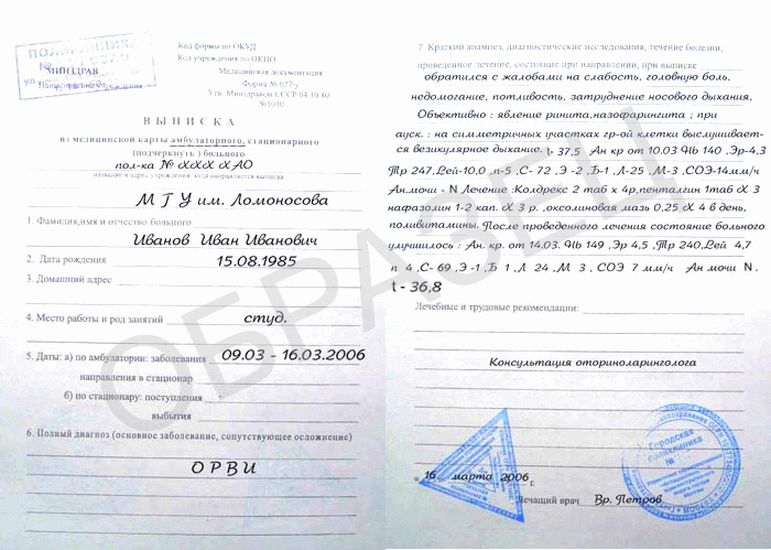 ПОЛИКЛИНИКА
МИНЗДРАВ
Код формы по ОКУД
Код учреждения по ОКПО
Медицинская документация
Форма № 027/у
Утв. Минздравом СССР 04.10.80
№1030
ВЫПИСКА
из медицинской карты амбулаторного, стационарного
(подчеркнуть) больного
пол-ка № ХХХ ХАО
название и адрес учреждения, куда направляется выписка
МГУ им. Ломоносова
1. Фамилия,имя и отчество больного
Иванов Иван Иванович
2. Дата рождения 15.08.1985
3. Домашний адрес
4. Место работы и род занятий студ.
5. Даты: а) по амбулатории: заболевания 09.03 - 16.03.2006
направления в стационар
б) по стационару: поступления
выбытия
6. Полный диагноз (основное заболевание, сопутствующее осложнение)
ОРВИ
7. Краткий анамнез, диагностические исследования, течение болезни,
проведенное лечение, состояние при направлении, при выписке
обратился с жалобами на слабость, головную боль,
недомогание, потливость, затруднение носового дыхания.
Объективно : явление ринита,назофарингита ; при
ауск. : на симметричных участках гр-ой клетки выслушивает-
ся везикулярное дыхание. t- 37,5 Ан кр от 10.03 Hb 140 ,Эр-4,3
Тр 247,Лей-10,0 ,п-5 ,С- 72 ,Э -2 ,Б-1 ,Л-25 ,М-3 ,СОЭ-14мм/ч
Ан.мочи - N Лечение :Колдрекс 2 таб х 4р,пенталгин 1таб Х 3
нафазолин 1-2 кап. Х 3 р. ,оксолиновая мазь 0,25 Х 4 в день,
поливитамины. После проведенного лечения состояние больного
улучшилось : Ан. кр. от 14.03. Hb 149 ,Эр 4,5 ,Тр 240,Лей 4,7
п 4 ,С- 69 ,Э -1 ,Б 1 ,Л 24 ,М 3 , СОЭ 7 мм/ч Ан мочи N .
t - 36,8
Лечебные и трудовые рекомендации:
Консультация оториноларинголога
Городская
поликлиника
№
« 16 » марта 2006 г.
Лечащий врач Вр. Петров
ОБРАЗЕЦ